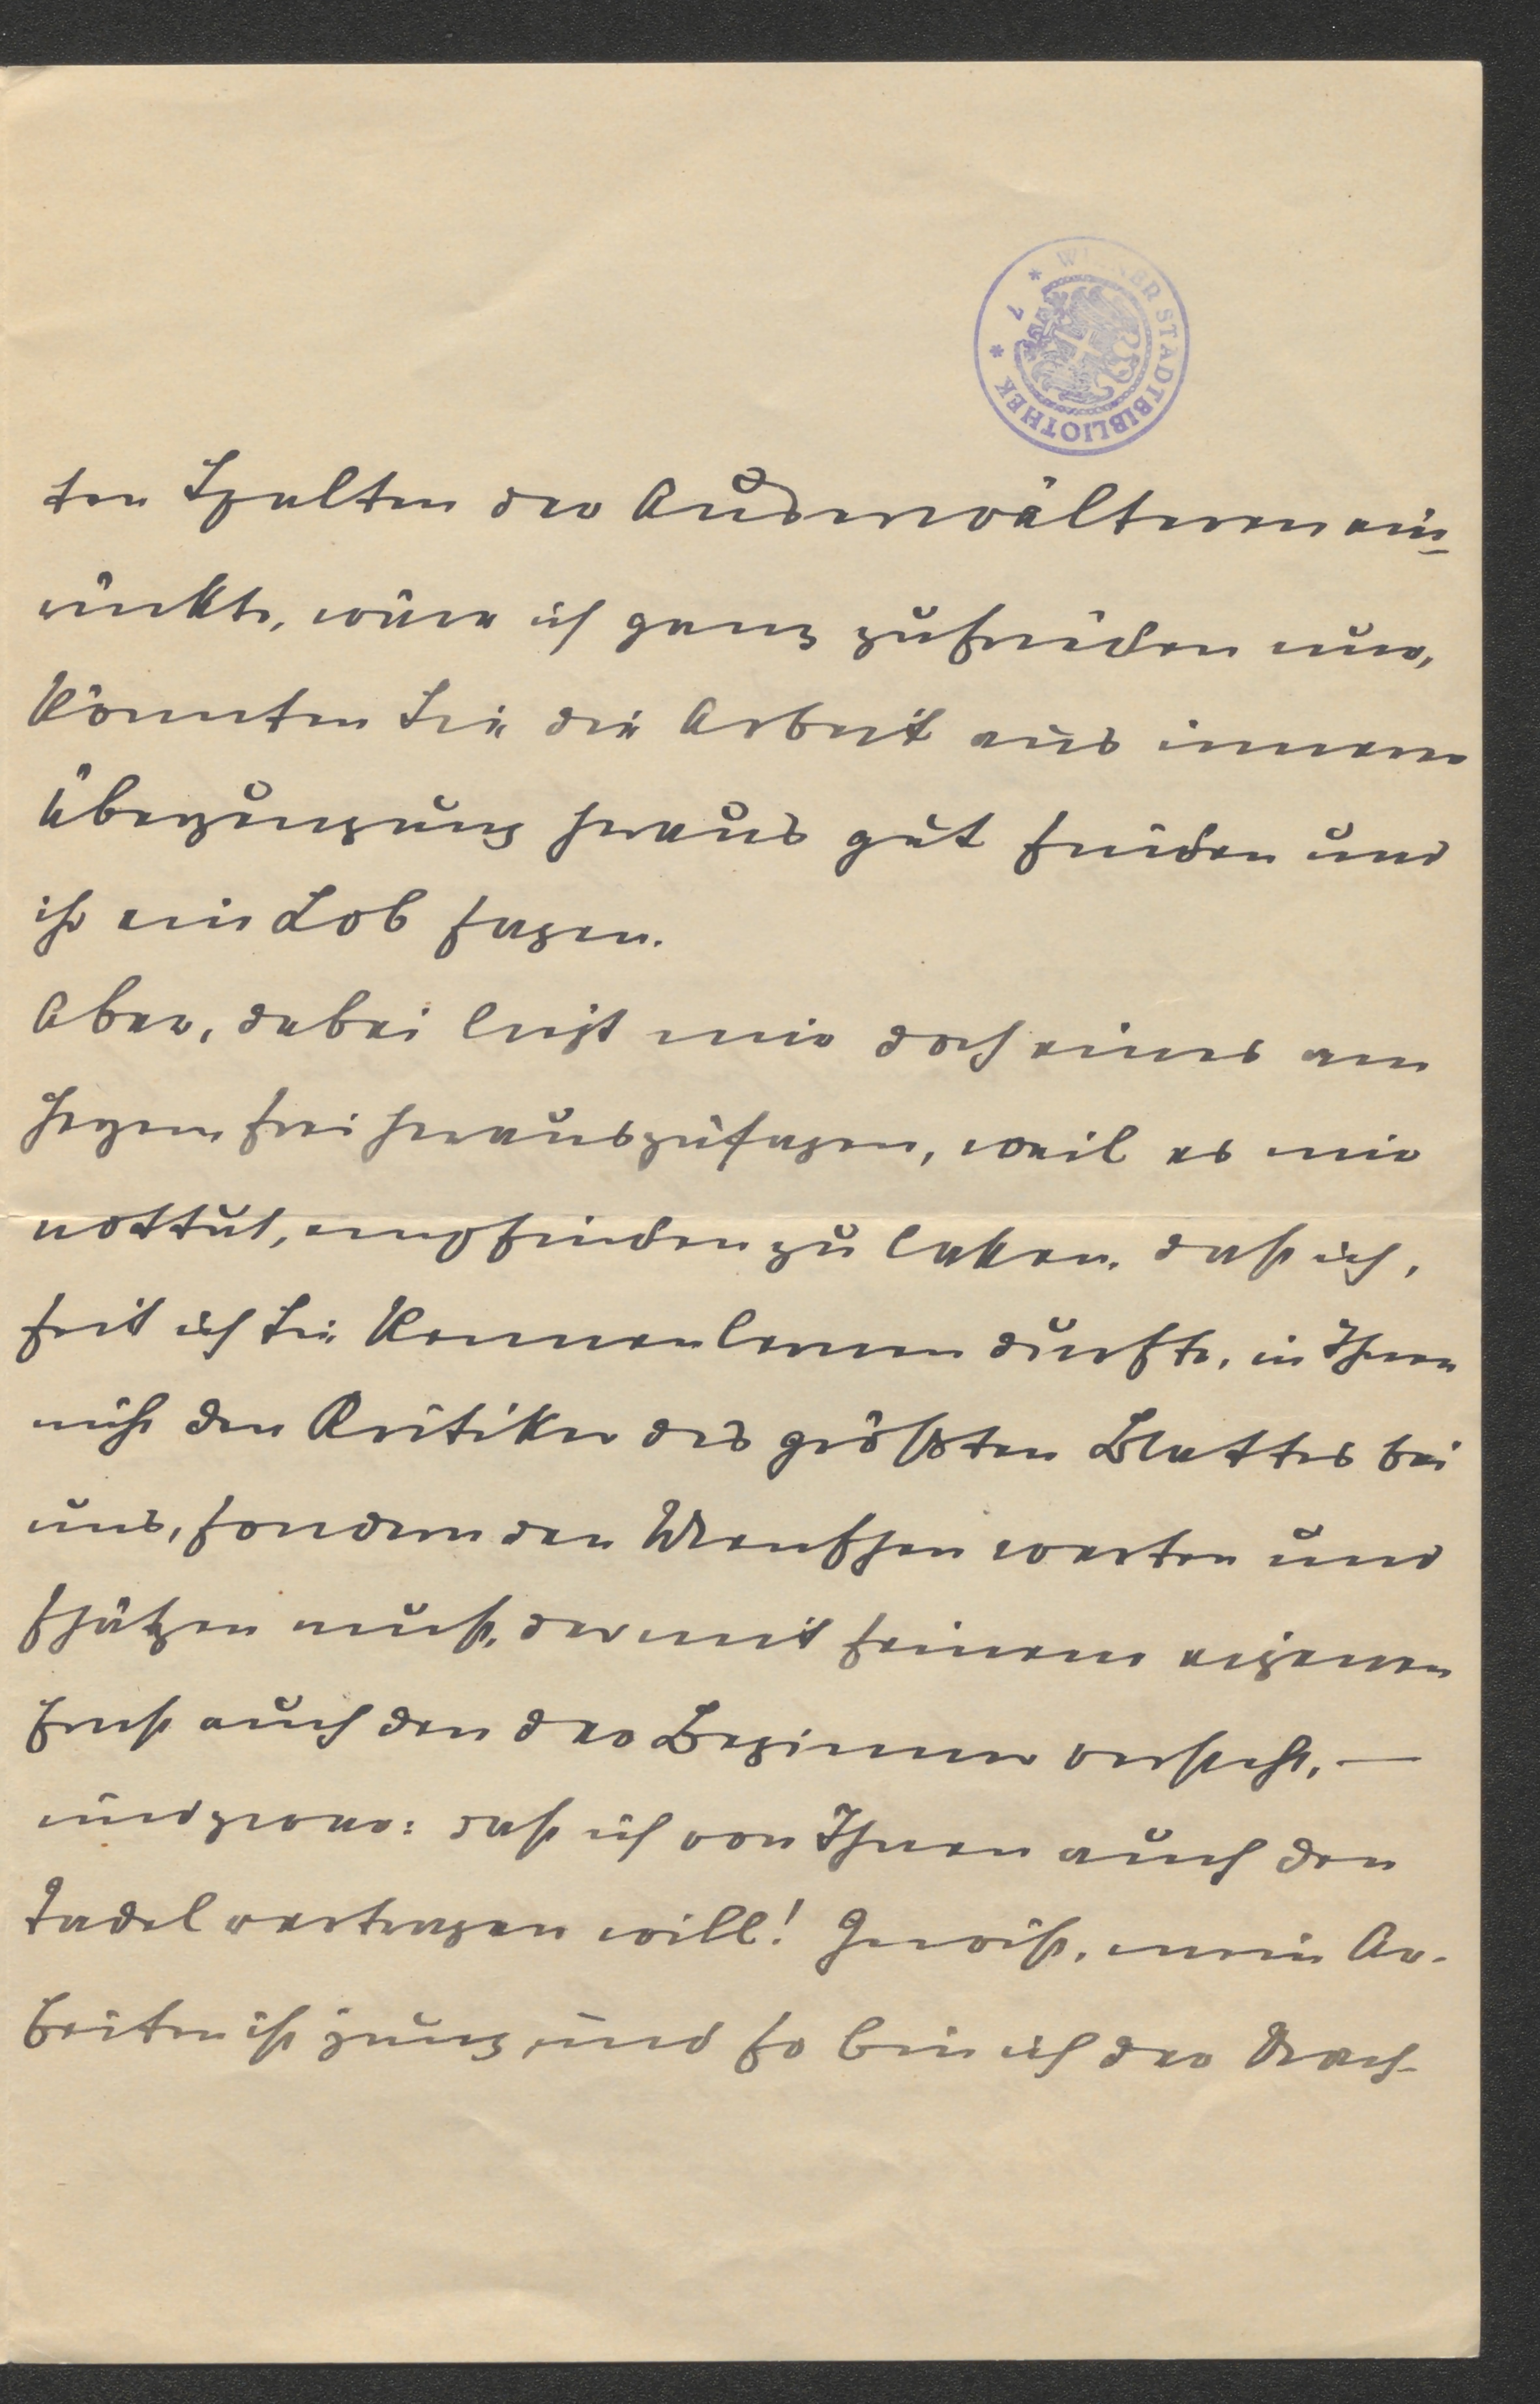 WIENER STADTBIBLIOTHEK * 7 *
ten Spalten der Auserwälteren ein-
rückte, wäre ich ganz zufrieden nur,
könnten Sie die Arbeit aus innerer
Überzeugung heraus gut finden und
ihr ein Lob sagen.
Aber, dabei liegt mir doch eines am
Herzen frei herauszusagen, weil es mir
nottut, empfinden zu lassen, daß ich,
seit ich Sie kennenlernen durfte, in Ihnen
nicht den Kritiker des größten Blattes bei
uns, sondern den Menschen werten und
schätzen muß, der mit seinem eigenen
Ernst auch den des Beginners versteht, —
und zwar: daß ich von Ihnen auch den
Tadel vertragen will! Gewiß, mein Ar-
beiten ist jung, und so bin ich der Nach-